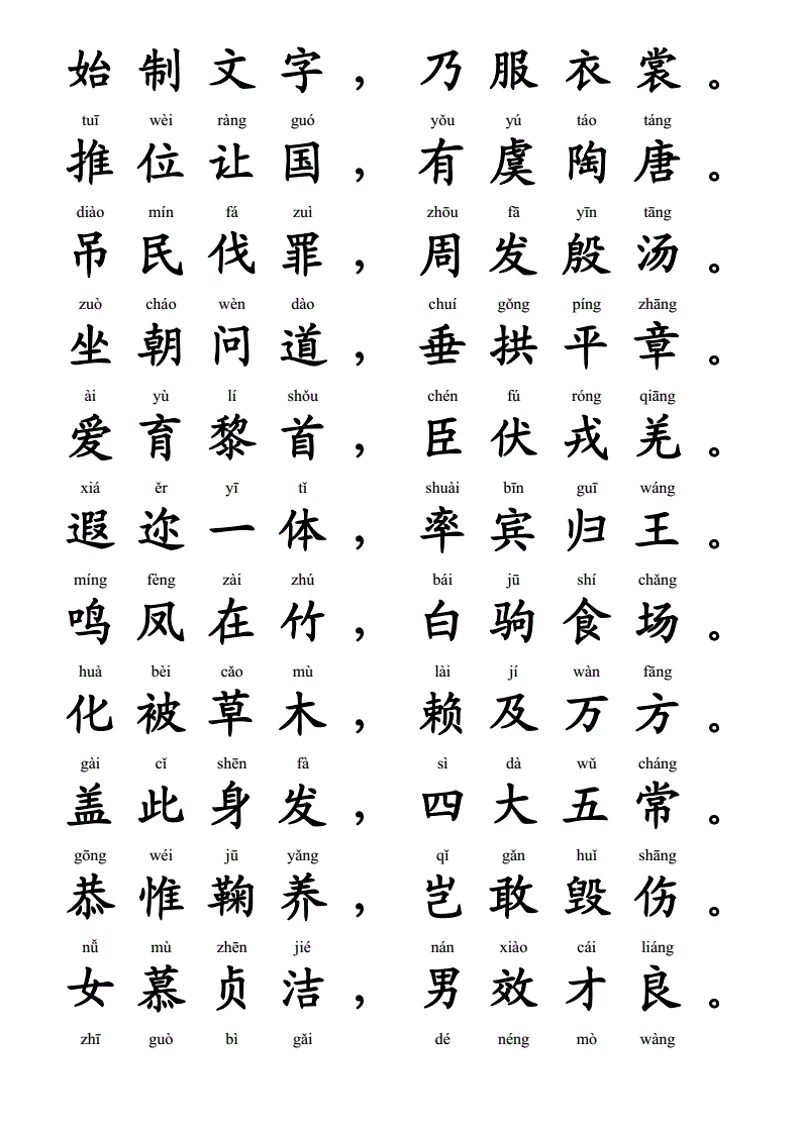 始制文字，乃服衣裳。
tuī wèi ràng guó yǒu yú táo táng
推位让国，有虞陶唐。
diào mín fá zuì zhōu fā yīn tāng
吊民伐罪，周发殷汤。
zuò cháo wèn dào chuí gǒng píng zhāng
坐朝问道，垂拱平章。
ài yù lí shǒu chén fú róng qiāng
爱育黎首，臣伏戎羌。
xiá ěr yī tǐ shuài bīn guī wáng
遐迩一体，率宾归王。
míng fèng zài zhú bái jū shí chǎng
鸣凤在竹，白驹食场。
huà bèi cǎo mù lài jí wàn fāng
化被草木，赖及万方。
gài cǐ shēn fà sì dà wǔ cháng
盖此身发，四大五常。
gōng wéi jū yǎng qǐ gǎn huǐ shāng
恭惟鞠养，岂敢毁伤。
nǚ mù zhēn jié nán xiào cái liáng
女慕贞洁，男效才良。
zhī guò bì gǎi dé néng mò wàng